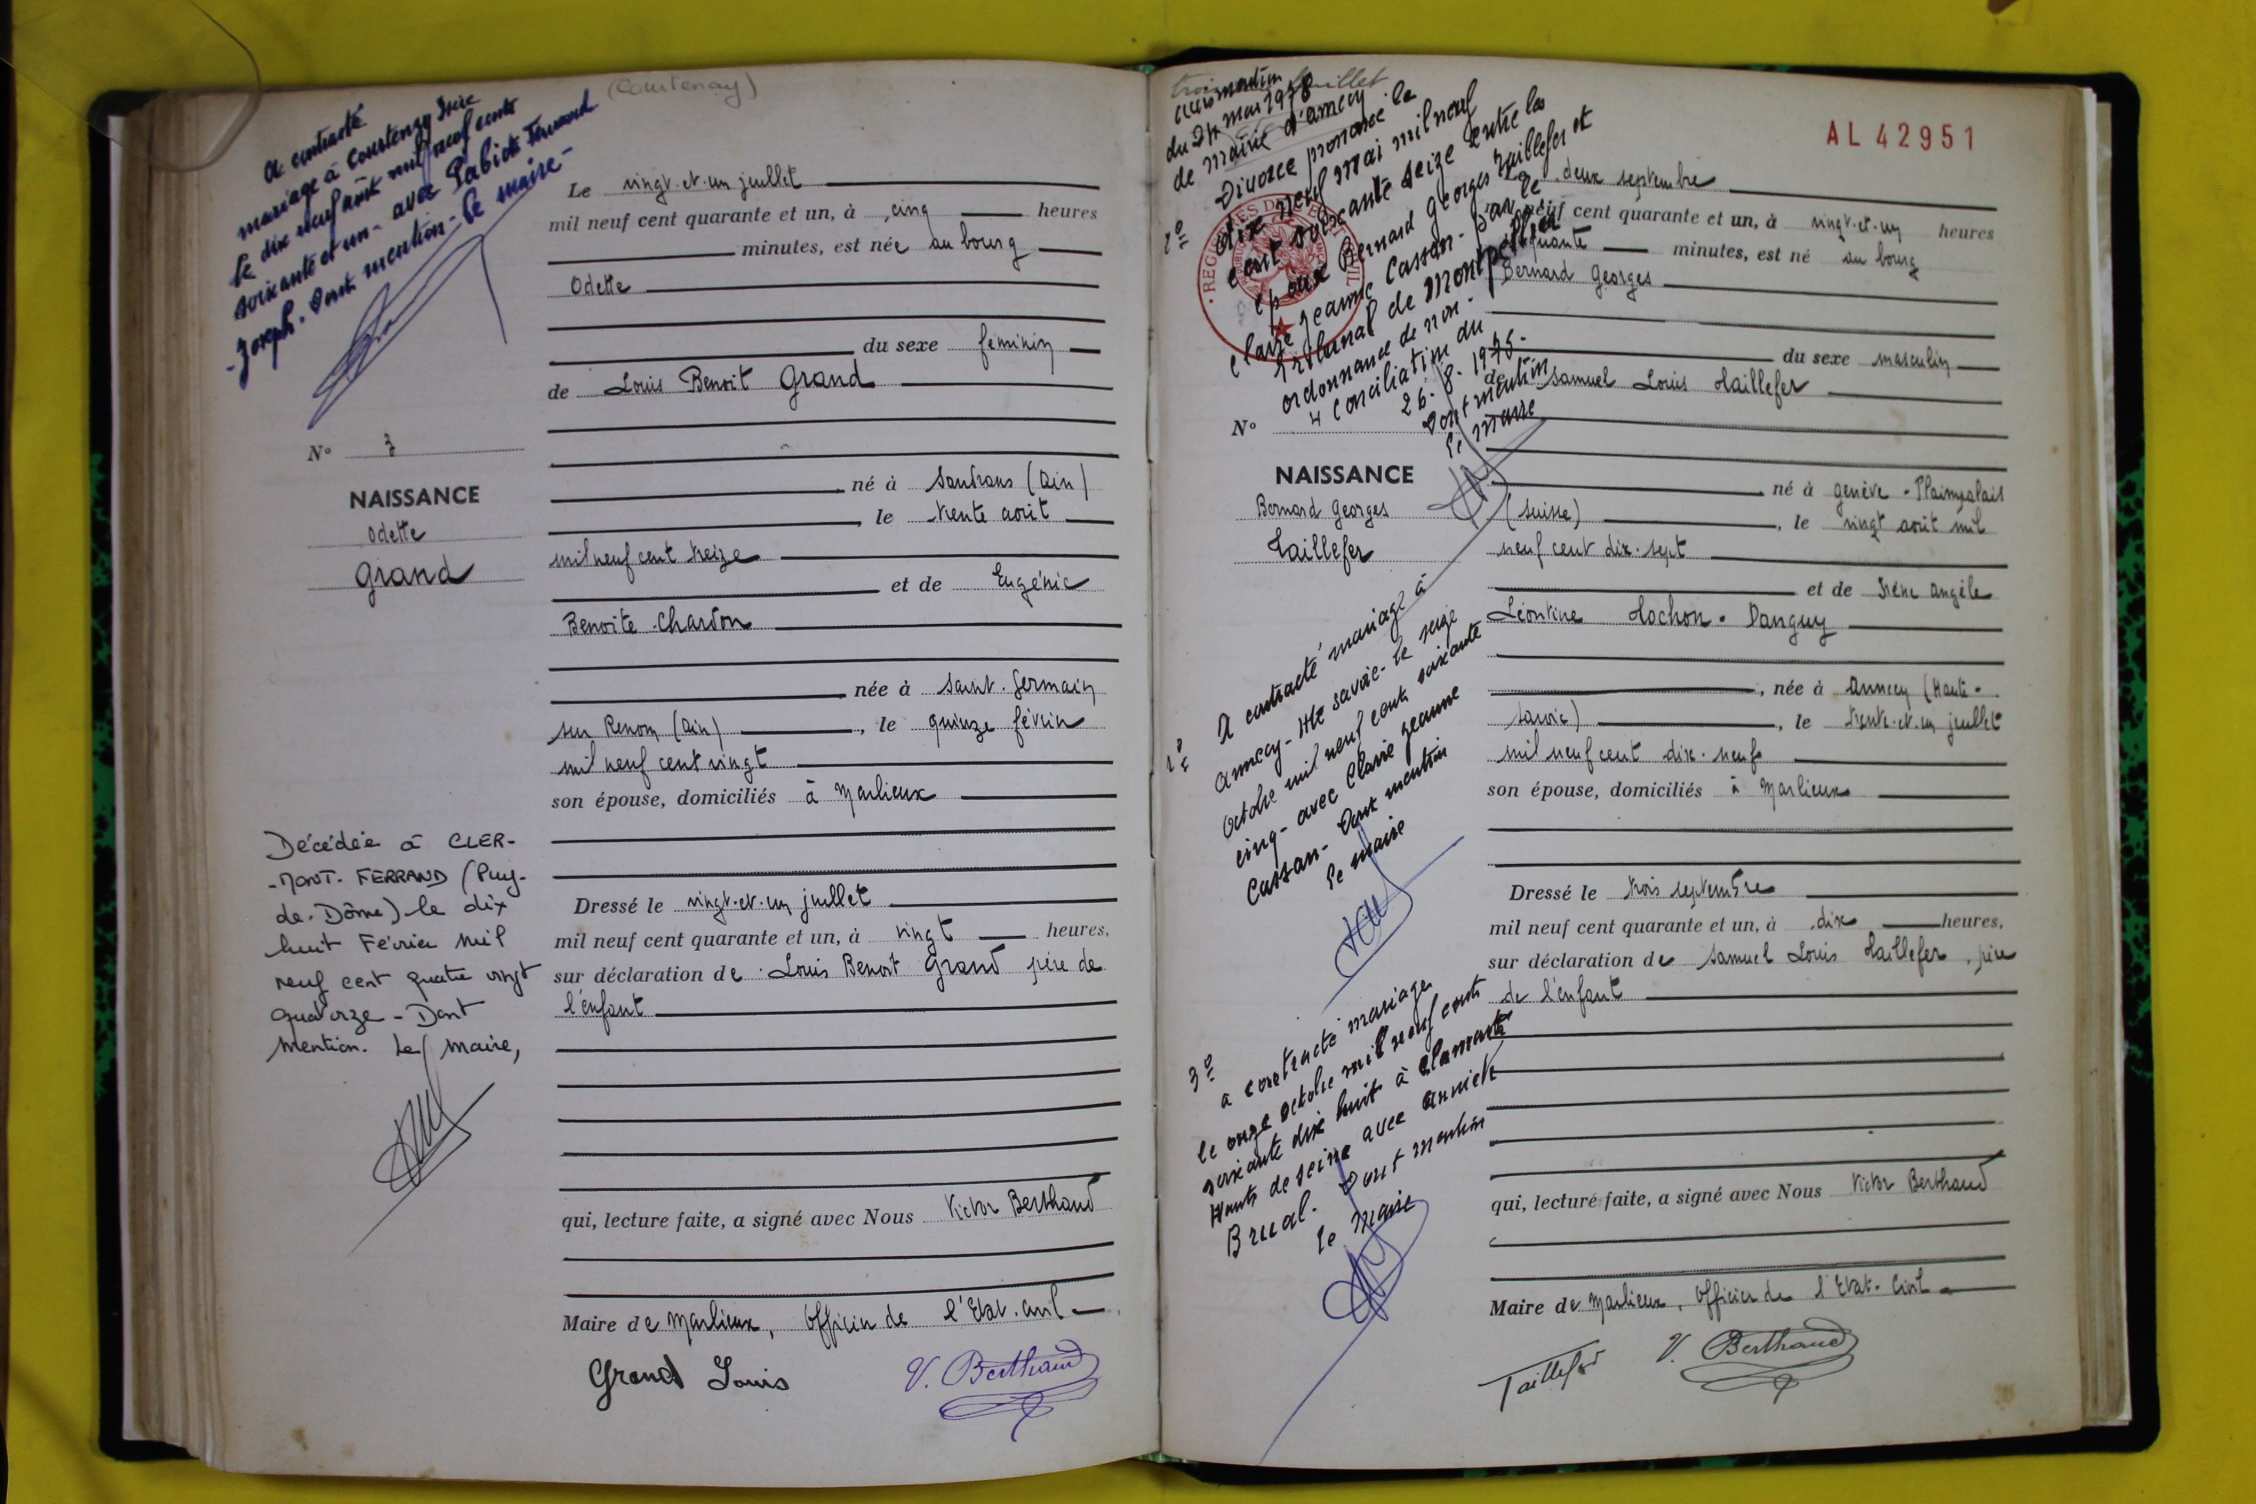 (Courtenay)
A contracté
mariage à Courtenay Isère
le dix neuf août mil neuf cent
soixante et un - avec Pabiot Fernand
Joseph. Dont mention - le maire -
N° 7
NAISSANCE
Odette
Grand
Décédée à CLER-
-MONT-FERRAND (Puy-
de-Dôme) le dix
huit Février mil
neuf cent quatre vingt
quatorze - Dont
mention. Le maire,
Le vingt-et-un juillet
mil neuf cent quarante et un, à cinq heures
minutes, est née au bourg
Odette
du sexe féminin
de Louis Benoit Grand
né à Sandrans (Ain)
, le trente août
mil neuf cent treize
et de Eugénie
Benoite Chardon
née à Saint-Germain
sur Renom (Ain) , le quinze février
mil neuf cent vingt
son épouse, domiciliés à Marlieux
Dressé le vingt-et-un juillet
mil neuf cent quarante et un, à vingt heures,
sur déclaration de Louis Benoit Grand père de
l'enfant
qui, lecture faite, a signé avec Nous Victor Berthaud
Maire de Marlieux, Officier de l'Etat-civil
Grand Louis V. Berthaud
mention
du 24 mai 1978
de mairie d'annecy
2°
Divorce prononcé le
dix neuf mai mil neuf
cent soixante seize entre les
époux Bernard Georges Taillefer et
Claire Jeanne Cassan - Par le
Tribunal de Montpellier
ordonnance de non-
conciliation du
26.8.1975.
Dont mention
le maire
N° 4
NAISSANCE
Bernard Georges
Taillefer
1°
A contracté mariage à
annecy - Hte savoie - le seize
octobre mil neuf cent soixante
cinq - avec Claire Jeanne
Cassan - Dont mention
le maire
3°
a contracté mariage
le onze octobre mil neuf cent
soixante dix huit à Clamart
Hauts de seine avec Annick
Brual. Dont mention
le maire
AL 42951
Le deux septembre
mil neuf cent quarante et un, à vingt-et-un heures
minutes, est né au bourg
Bernard Georges
du sexe masculin
de Samuel Louis Taillefer
né à Genève - Plainpalais
(Suisse) , le vingt août mil
neuf cent dix-sept
et de Irène Angèle
Léontine Hochon-Danguy
, née à Annecy (Haute-
Savoie) , le trente-et-un juillet
mil neuf cent dix-neuf
son épouse, domiciliés à Marlieux
Dressé le trois septembre
mil neuf cent quarante et un, à dix heures,
sur déclaration de Samuel Louis Taillefer, père
de l'enfant
qui, lecture faite, a signé avec Nous Victor Berthaud
Maire de Marlieux, Officier de l'Etat-Civil
Taillefer V. Berthaud